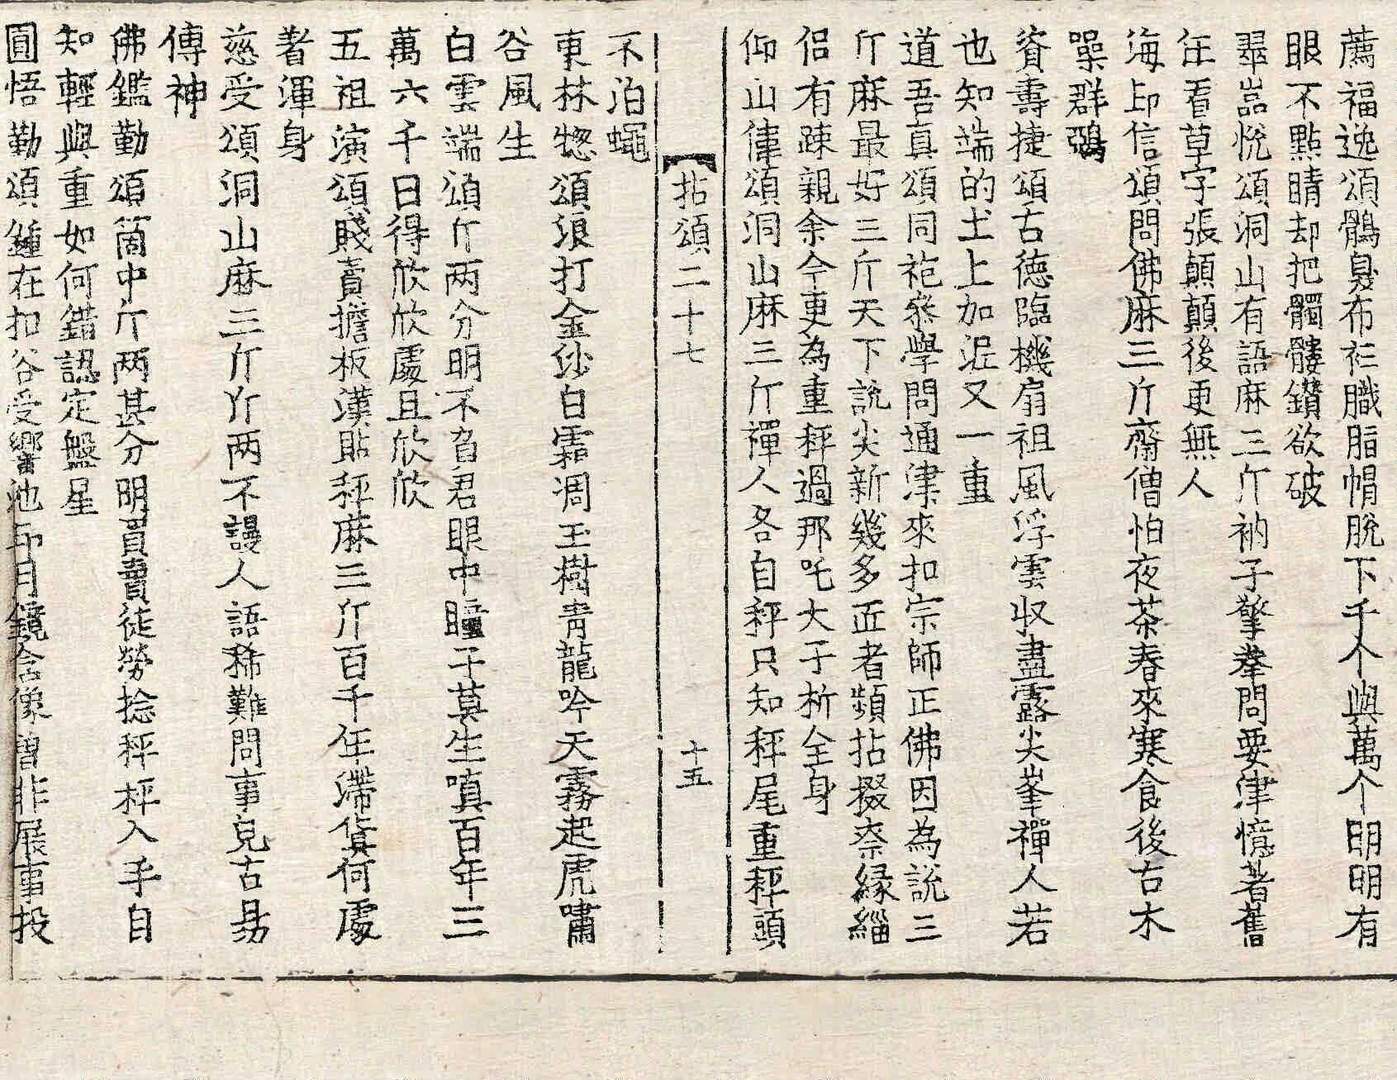 薦福逸頌鶻臭布衫膱脂帽脫下千个與萬个明明有
眼不點睛却把髑髏鑽欲破
翠嵓悅頌洞山有語麻三斤衲子擎拳問要津憶著舊
年看草字張顛顛後更無人
海印信頌問佛麻三斤齋僧怕夜茶春來寒食後古木
噪群鵶
資壽捷頌古德臨機扇祖風浮雲収盡露尖峯禪人若
也知端的土上加泥又一重
道吾真頌同袍叅學問通津來扣宗師正佛因為說三
斤麻最好三斤天下說尖新幾多匠者頻拈掇柰縁緇
侶有疎親余今更為重秤過那吒太子析全身
仰山偉頌洞山麻三斤禪人各自秤只知秤尾重秤頭
拈頌二十七 十五
不泊蠅
東林惣頌浪打金沙白霜凋玉樹青龍吟天霧起虎嘯
谷風生
白雲端頌斤两分明不負君眼中瞳子莫生嗔百年三
萬六千日得欣欣處且欣欣
五祖演頌賤賣擔板漢貼秤麻三斤百千年滯貨何處
著渾身
慈受頌洞山麻三斤斤两不謾人語稀難問事皃古易
傳神
佛鑑勤頌箇中斤两甚分明買賣徒勞捻秤秤入手自
知輕與重如何錯認定盤星
圓悟勤頌鍾在扣谷受響池印月鏡含像曽非展事投